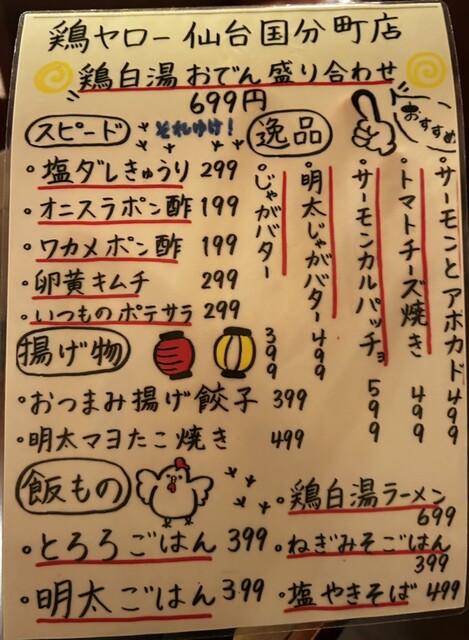 鶏ヤロー仙台国分町店
鶏白湯おでん盛り合わせ
699円
スピード
それゆけ!
・塩ダレきゅうり 299
・オニスラポン酢 199
・ワカメポン酢 199
・卵黄キムチ 299
・いつものポテサラ 299
逸品
おすすめ
・サーモンとアホカド 499
・トマトチーズ焼き 499
・サーモンカルパッチョ 599
・明太じゃがバター 499
・じゃがバター 399
揚げ物
・おつまみ揚げ餃子 399
・明太マヨたこ焼き 499
飯もの
・とろろごはん 399
・明太ごはん 399
・鶏白湯ラーメン
699
・ねぎみそごはん
399
・塩やきそば 499